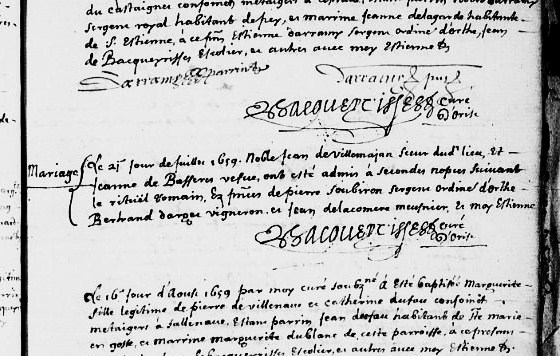 du castaignet consoinct metaigers a
sergent royal habitant de pey, et marrine Jeanne delagarde habitante
de St Estienne, a ce fins Estienne darramy sergent ordine dorthe, Jean
de Bacquerrisses Escolier, et autres avec moy Estienne de
Darramy parrin
Darramy
Bacquerrisses curé
d'Orist
Mariage
Le 21 jour de Juillet 1659. Noble Jean de Villemajan sieur dud. lieu, Et
Jeanne de Basserus vefue, ont esté admis a secondes nopces suivant
le rituel romain, Ez pnces de pierre soubiron sergent ordine dorthe
Bertrand darget vigneron, et Jean delacomere meusnier, et moy Estienne
Bacquerrisses curé
d'Orist
Le 16 jour d'Aoust 1659 par moy curé soubzné a esté baptisée Marguerite
fille legitime de pierre de villenave et catherine dufau consoinct
metaigers a sallenave, Estant parrin Jean dufau habitant de Ste marie
en gosse, et marrine marguerite dublanc de cette parroisse, a ce presens
de bacquerrisses Escolier, et autres avec moy Estienne de